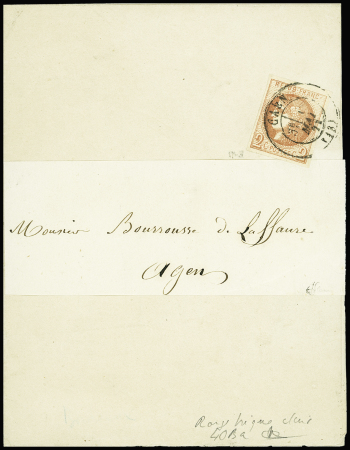 CAEN
(13)
Monsieur Bourrousse de Laffaure
Agen
Rouge brique clair
40Ba